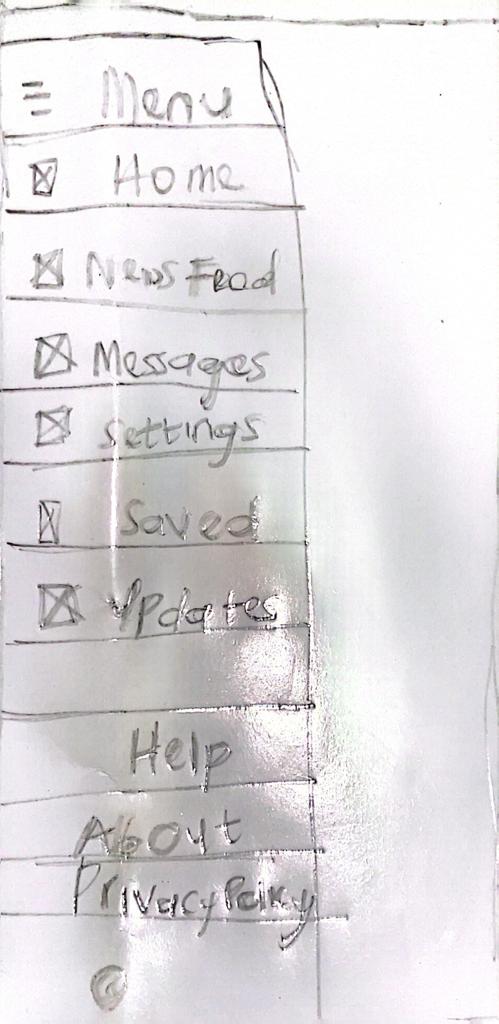 Menu
Home
News Feed
Messages
settings
Saved
Updates
Help
About
Privacy Policy
@